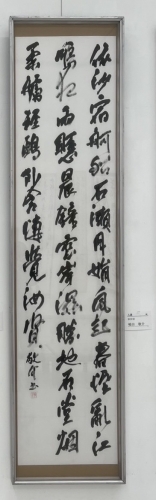 依沙宿舸船石瀨月娟風起春燈亂江
鳴夜雨懸晨鐘雲岸濕勝地石堂煙
柔艣輕鷗外含悽覺汝賢